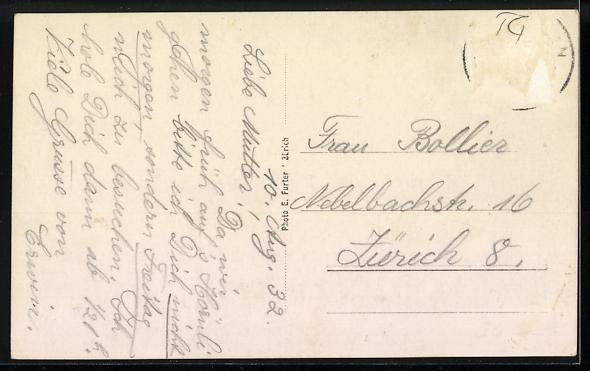 10. Aug. 32.
Liebe Mutter!
Da wir
morgen früh auf's Hörnli
gehen bitte ich Dich nicht
morgen, sondern Freitag
mich zu besuchen. Ich
hole Dich dann ab 12¹ h.
Viele Grüsse von
Erwin.
Photo E. Furter, Zürich
Frau Bollier
Nebelbachstr. 16
Zürich 8.